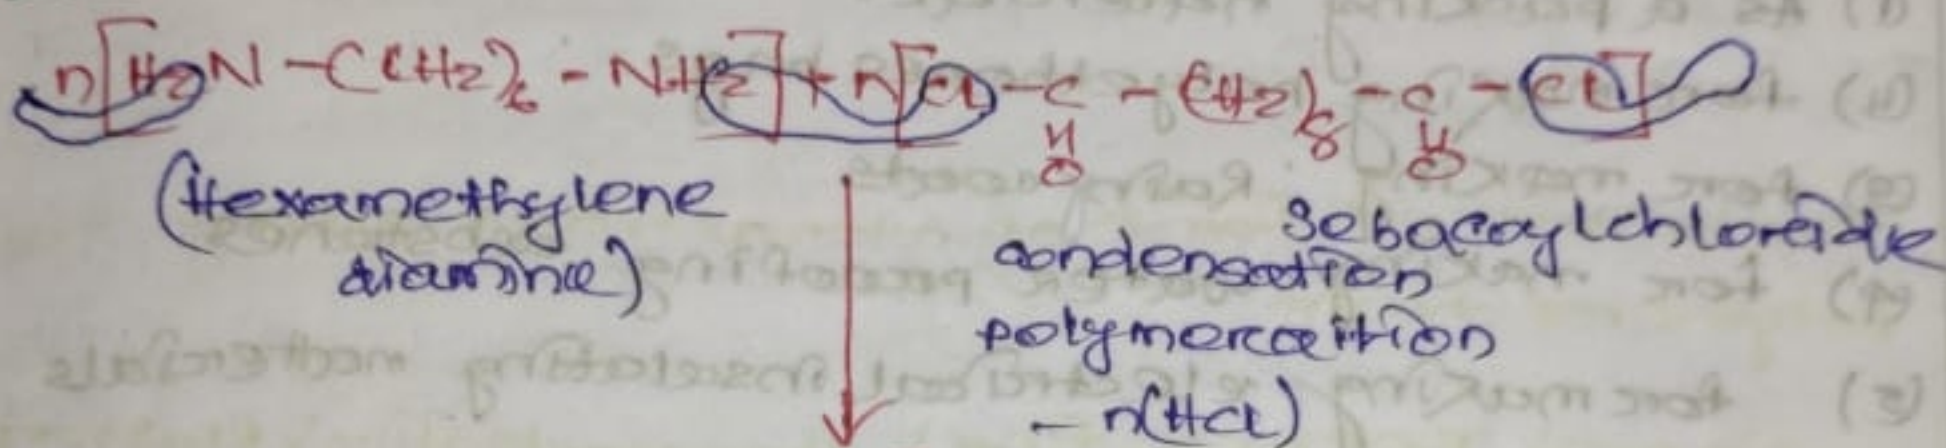 n[H2N-(CH2)6-NH2]+n[Cl-C-(CH2)8-C-Cl]
O O
(Hexamethylene
diamine)
Sebacoylchloreide
condensation
polymeraition
- n(HCl)